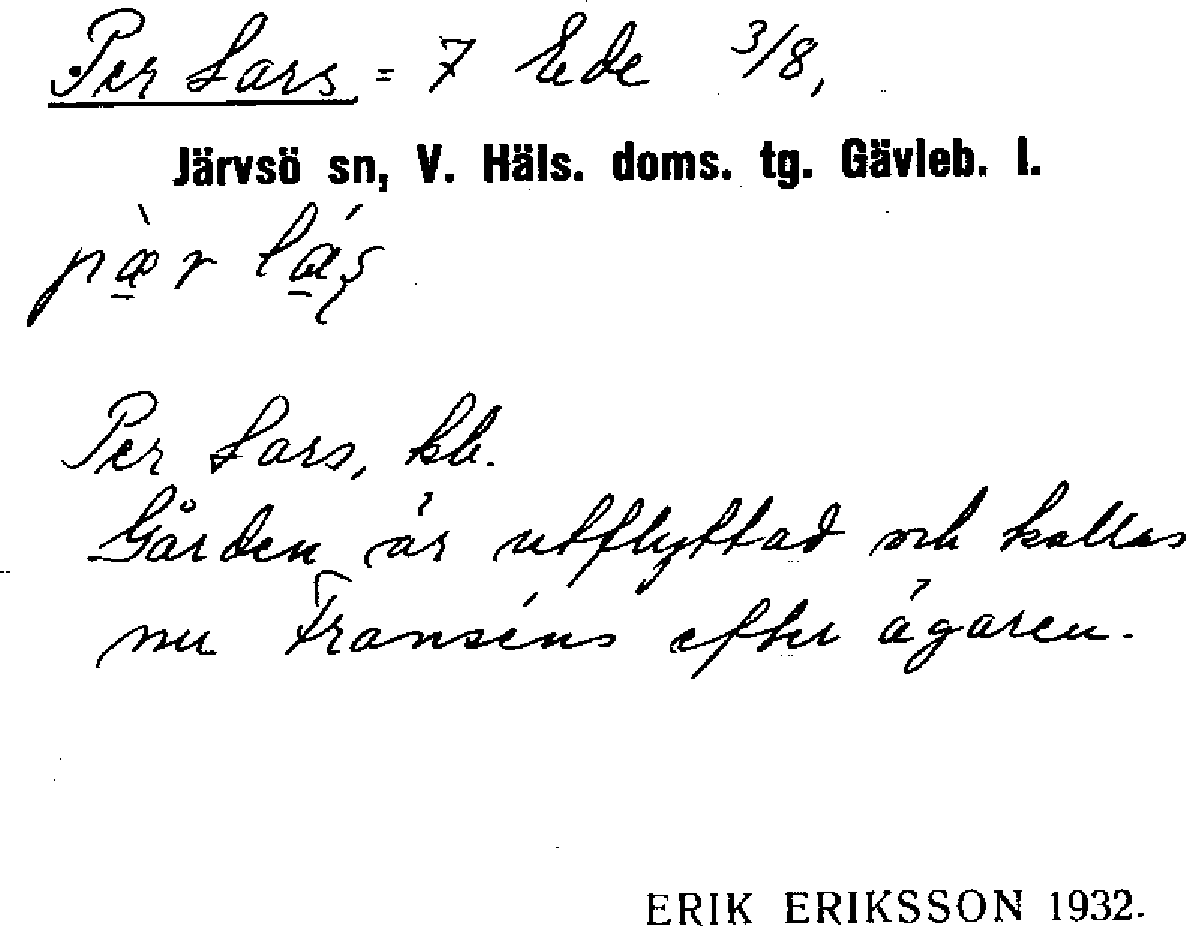 Per Lars = 7 Ede 3/8,
Järvsö sn, V. Häls. doms. tg. Gävleb. l.
pæ̀r láʂ
Per Lars, kb.
Gården är utflyttad och kallas
nu Franséns efter ägaren.
ERIK ERIKSSON 1932.